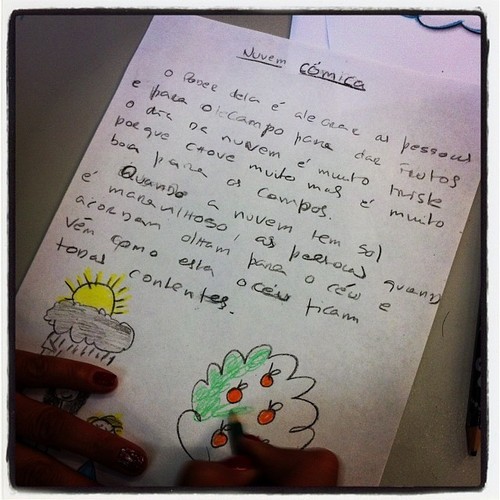 Nuvem Cómica
O Poder dela é alegrar as pessoas
e para o campo para dar frutos
o dia da nuvem é muito triste
porque chove muito mas é muito
boa para os campos.
Quando a nuvem tem sol
é maravilhoso, as pessoas quando
acordam olham para o céu e
vêm como esta o céu ficam
todas contentes.